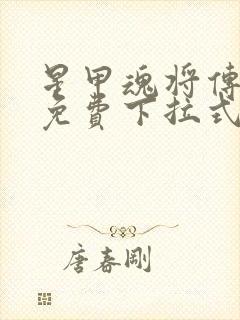 星甲魂将傳
免費下拉式
唐春剛